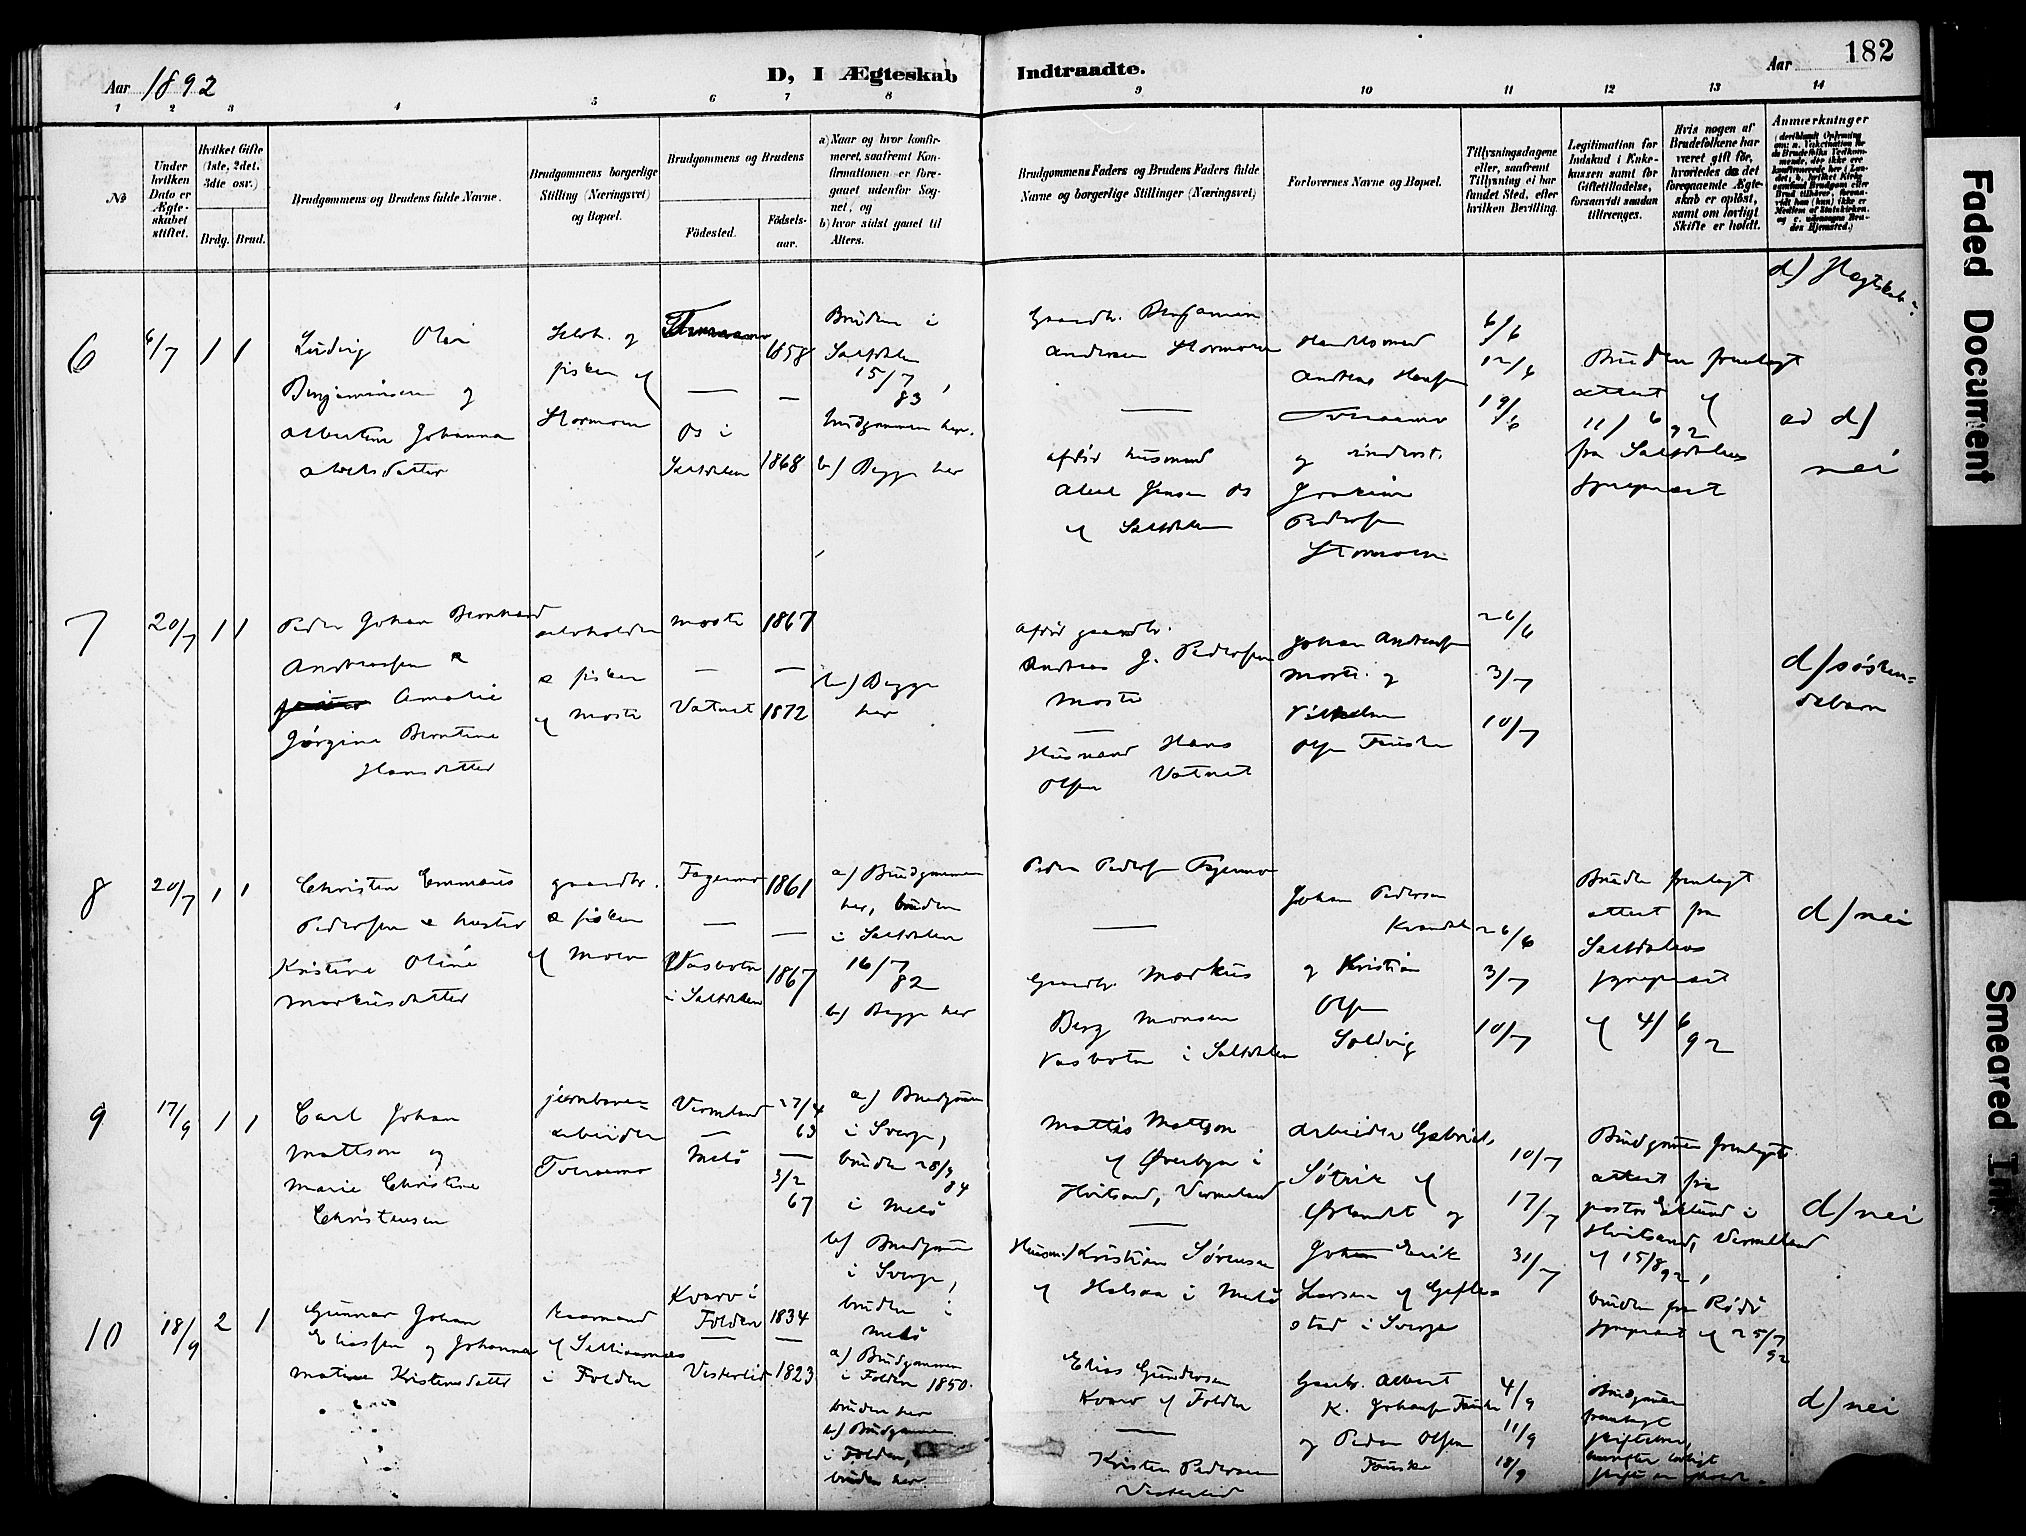 182
Aar 1892
D, I Ægteskab Indtraadte.
Aar
1 2 3 4 5 6 7 8 9 10 11 12 13 14
No
Under hvilken Dato er Ægte-skabet stiftet.
Hvilket Gifte (1ste, 2det, 3die osv.)
Brdg. Brud.
Brudgommens og Brudens fulde Navne.
Brudgommens borgerlige Stilling (Næringsvei) og Bopæl.
Brudgommens og Brudens
Fødested.
Fødsels-aar.
a) Naar og hvor konfir-meret, saafremt Kon-firmationen er fore-gaaet udenfor Sog-net, og
b) hvor sidst gaaet til Alters.
Brudgommens Faders og Brudens Faders fulde Navne og borgerlige Stillinger (Næringsvei)
Forlovernes Navne og Bopæl.
Tillysningsdagene eller, saafremt Tillysning ei har fundet Sted, efter hvilken Bevilling.
Legitimation for Indskud i Enke-kassen samt for Giftetilladelse, forsaavidt saadan tiltrænges.
Hvis nogen af Brudefolkene har været gift før, hvorledes da det foregaaende Ægte-skab er opløst, samt om lovligt Skifte er holdt.
Anmærkninger
6
6/7
1 1
Ludvig Olai
Benjaminsen og
Albertine Johanna
Abelsdatter
Selvh. og
fisker af
Stormoen
1858
—
Os i
Saltdalen 1868
Bruden i
Saltdalen
15/7 83
brudgommen her.
b) Begge her
Gaardbr. Benjamin
Andersen Stormoen
—
afdød husmand
Abel Jensen Os
af Saltdalen
Handelsmand
Andreas Hansen
Tveraamo
og
Joakim
Pedersen
Stormoen
6/6
12/6
19/6
Bruden fremlagt
attest af
11/6 92
fra Saltdalens
sogneprest
ad d)
nei
7
20/7
1 1
Peder Johan Bernhard
Andreassen &
Amalie
Jørgine Berntine
Hansdatter
selvholder
& fisker
af Moste
Moste 1867
— —
Vatnet 1872
b) Begge
her
afdød gaardbr.
Andreas J. Pedersen
Moste
—
Husmand Hans
Olsen Vatnet
Johan Andreassen
Moste og
Vilhelm
Olsen Fauske
26/6
3/7
10/7
d) søsken-
debarn
8
20/7
1 1
Christen Emmaus
Pedersen &
Kristine Oline
Markusdatter
gaardbr.
& fisker
af Moen
Fagermo 1861
— —
Vasbotn
i Saltdalen 1867
a) Brudgommen
her, bruden
i Saltdalen
16/7 82
b) Begge her
Peder Pedersen Fagermo
—
Gaardbr. Markus
Berg Monsen
Vasbotn i Saltdalen
Johan Pedersen
Kvandal
og Kristian
Olsen
Soldvig
26/6
3/7
10/7
Bruden fremlagt
attest fra
Saltdalens
sogneprest
af 4/6 92
d) nei
9
17/9
1 1
Carl Johan
Mattson og
Marie Christine
Christensen
jernbane-
arbeider
Tveraamo
Vermland 27/4 63
— —
Melø 3/2 67
a) Brudgommen
i Sverge,
bruden 28/9 84
i Melø
b) Brudgommen
i Sverge,
bruden i
Melø
Mattis Mattson
af Øverbyn i
Hvitsand, Vermeland
—
Husm. Kristian Sørensen
af Halsaa i Melø
Arbeider Gabriel
Søtvik af
Ørlandet og
Johan Erik
Larsen af Gefle-
stad i Sverge
10/7
17/7
31/7
Brudgommen fremlagt
attest fra
pastor Eklund i
Hvitsand, Vermeland
af 15/8 92,
bruden fra Rødø
sogneprest af 25/7 92
d) nei
10
18/9
2 1
Gunnar Johan
Eliassen og Johanna
Matine Kristensdatter
kaarmand
i Folden
Kvarv i
Folden 1834
— —
Vesterlid 1823
a) Brudgommen
i Folden 1850.
bruden her
b) Brudgommen
i Folden,
bruden her.
Elias Gundersen
Kvarv af Folden
—
Kristen Pedersen
Vesterlid
Gaardbr. Albert
K. Johansen Fauske
og Peder Olsen
Fauske
4/9
11/9
18/9
Brudgommen
fremlagt
d) nei